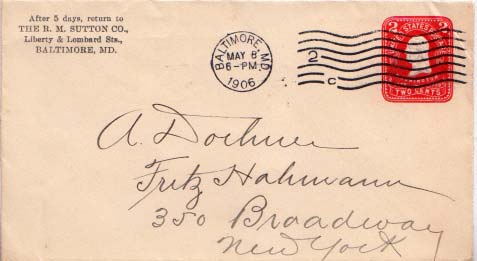 After 5 days, return to
THE R. M. SUTTON CO.,
Liberty & Lombard Sts.,
BALTIMORE, MD.
BALTIMORE, MD.
MAY 8
6-PM
1906
2
C
2 2
UNITED STATES POSTAGE
WASHINGTON
TWO CENTS
A. Dochner
Fritz Hahmann
350 Broadway
New York